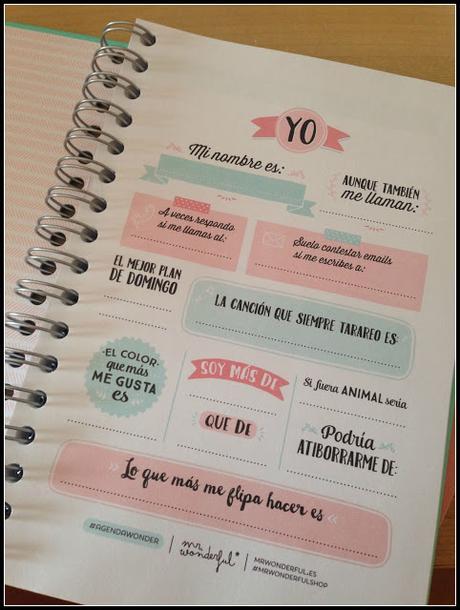 YO
Mi nombre es:
AUNQUE TAMBIÉN
me llaman:
A veces respondo
si me llamas al:
Suelo contestar emails
si me escribes a:
EL MEJOR PLAN
DE DOMINGO
LA CANCIÓN QUE SIEMPRE TARAREO ES:
·EL COLOR·
que más
ME GUSTA
es
SOY MÁS DE
QUE DE
Si fuera ANIMAL sería
Podría
ATIBORRARME DE:
» Lo que más me flipa hacer es «
#AGENDAWONDER
mr
wonderful*
MRWONDERFUL.ES
#MRWONDERFULSHOP